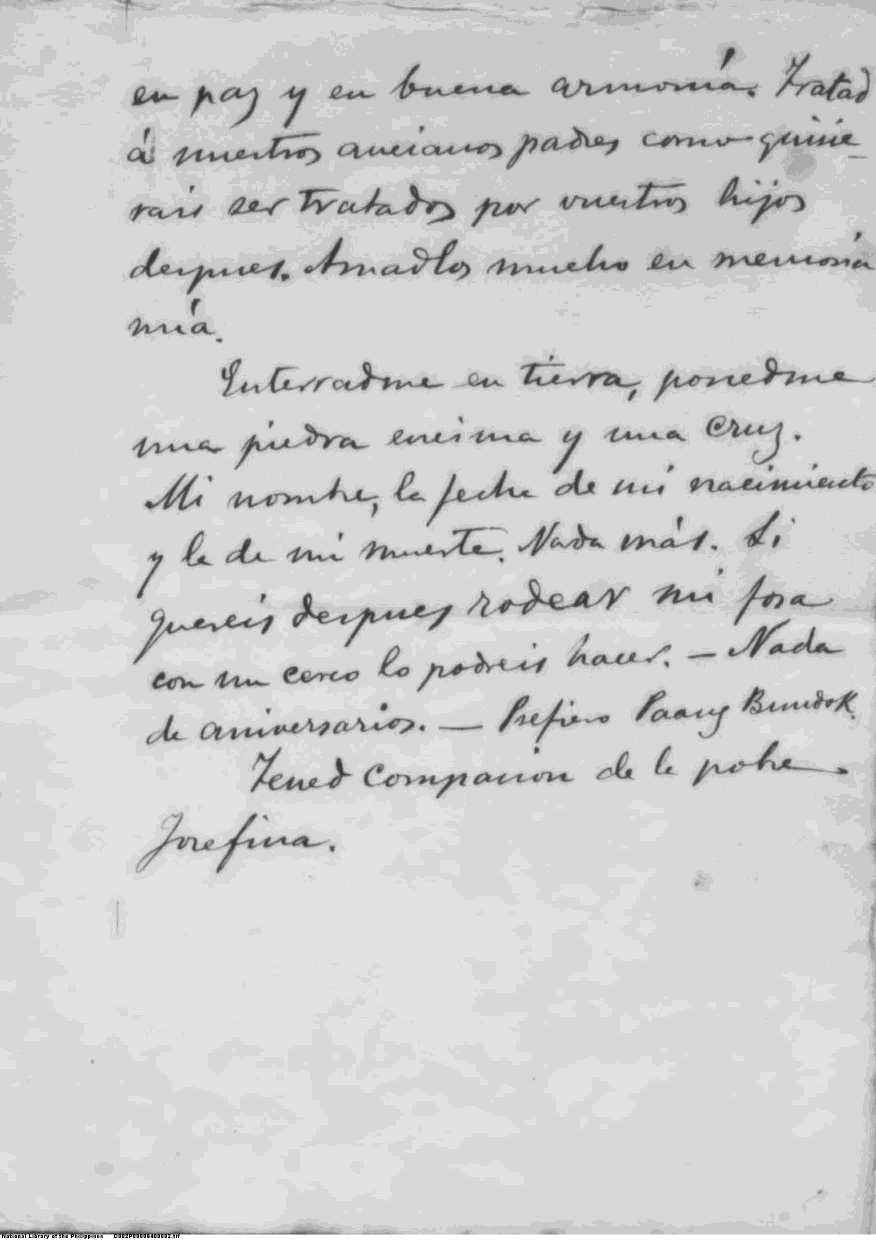 en paz y en buena armonía. Tratad
á nuestros ancianos padres como quisie-
rais ser tratados por vuestros hijos
despues. Amadlos mucho en memoria
mía.
Enterradme en tierra, ponedme
una piedra encima y una cruz.
Mi nombre, la fecha de mi nacimiento
y la de mi muerte. Nada más. Si
quereis despues rodear mi fosa
con un cerco lo podreis hacer. — Nada
de aniversarios. — Prefiero Paang Bundok.
Tened compasion de la pobre
Josefina.
National Library of the Philippines